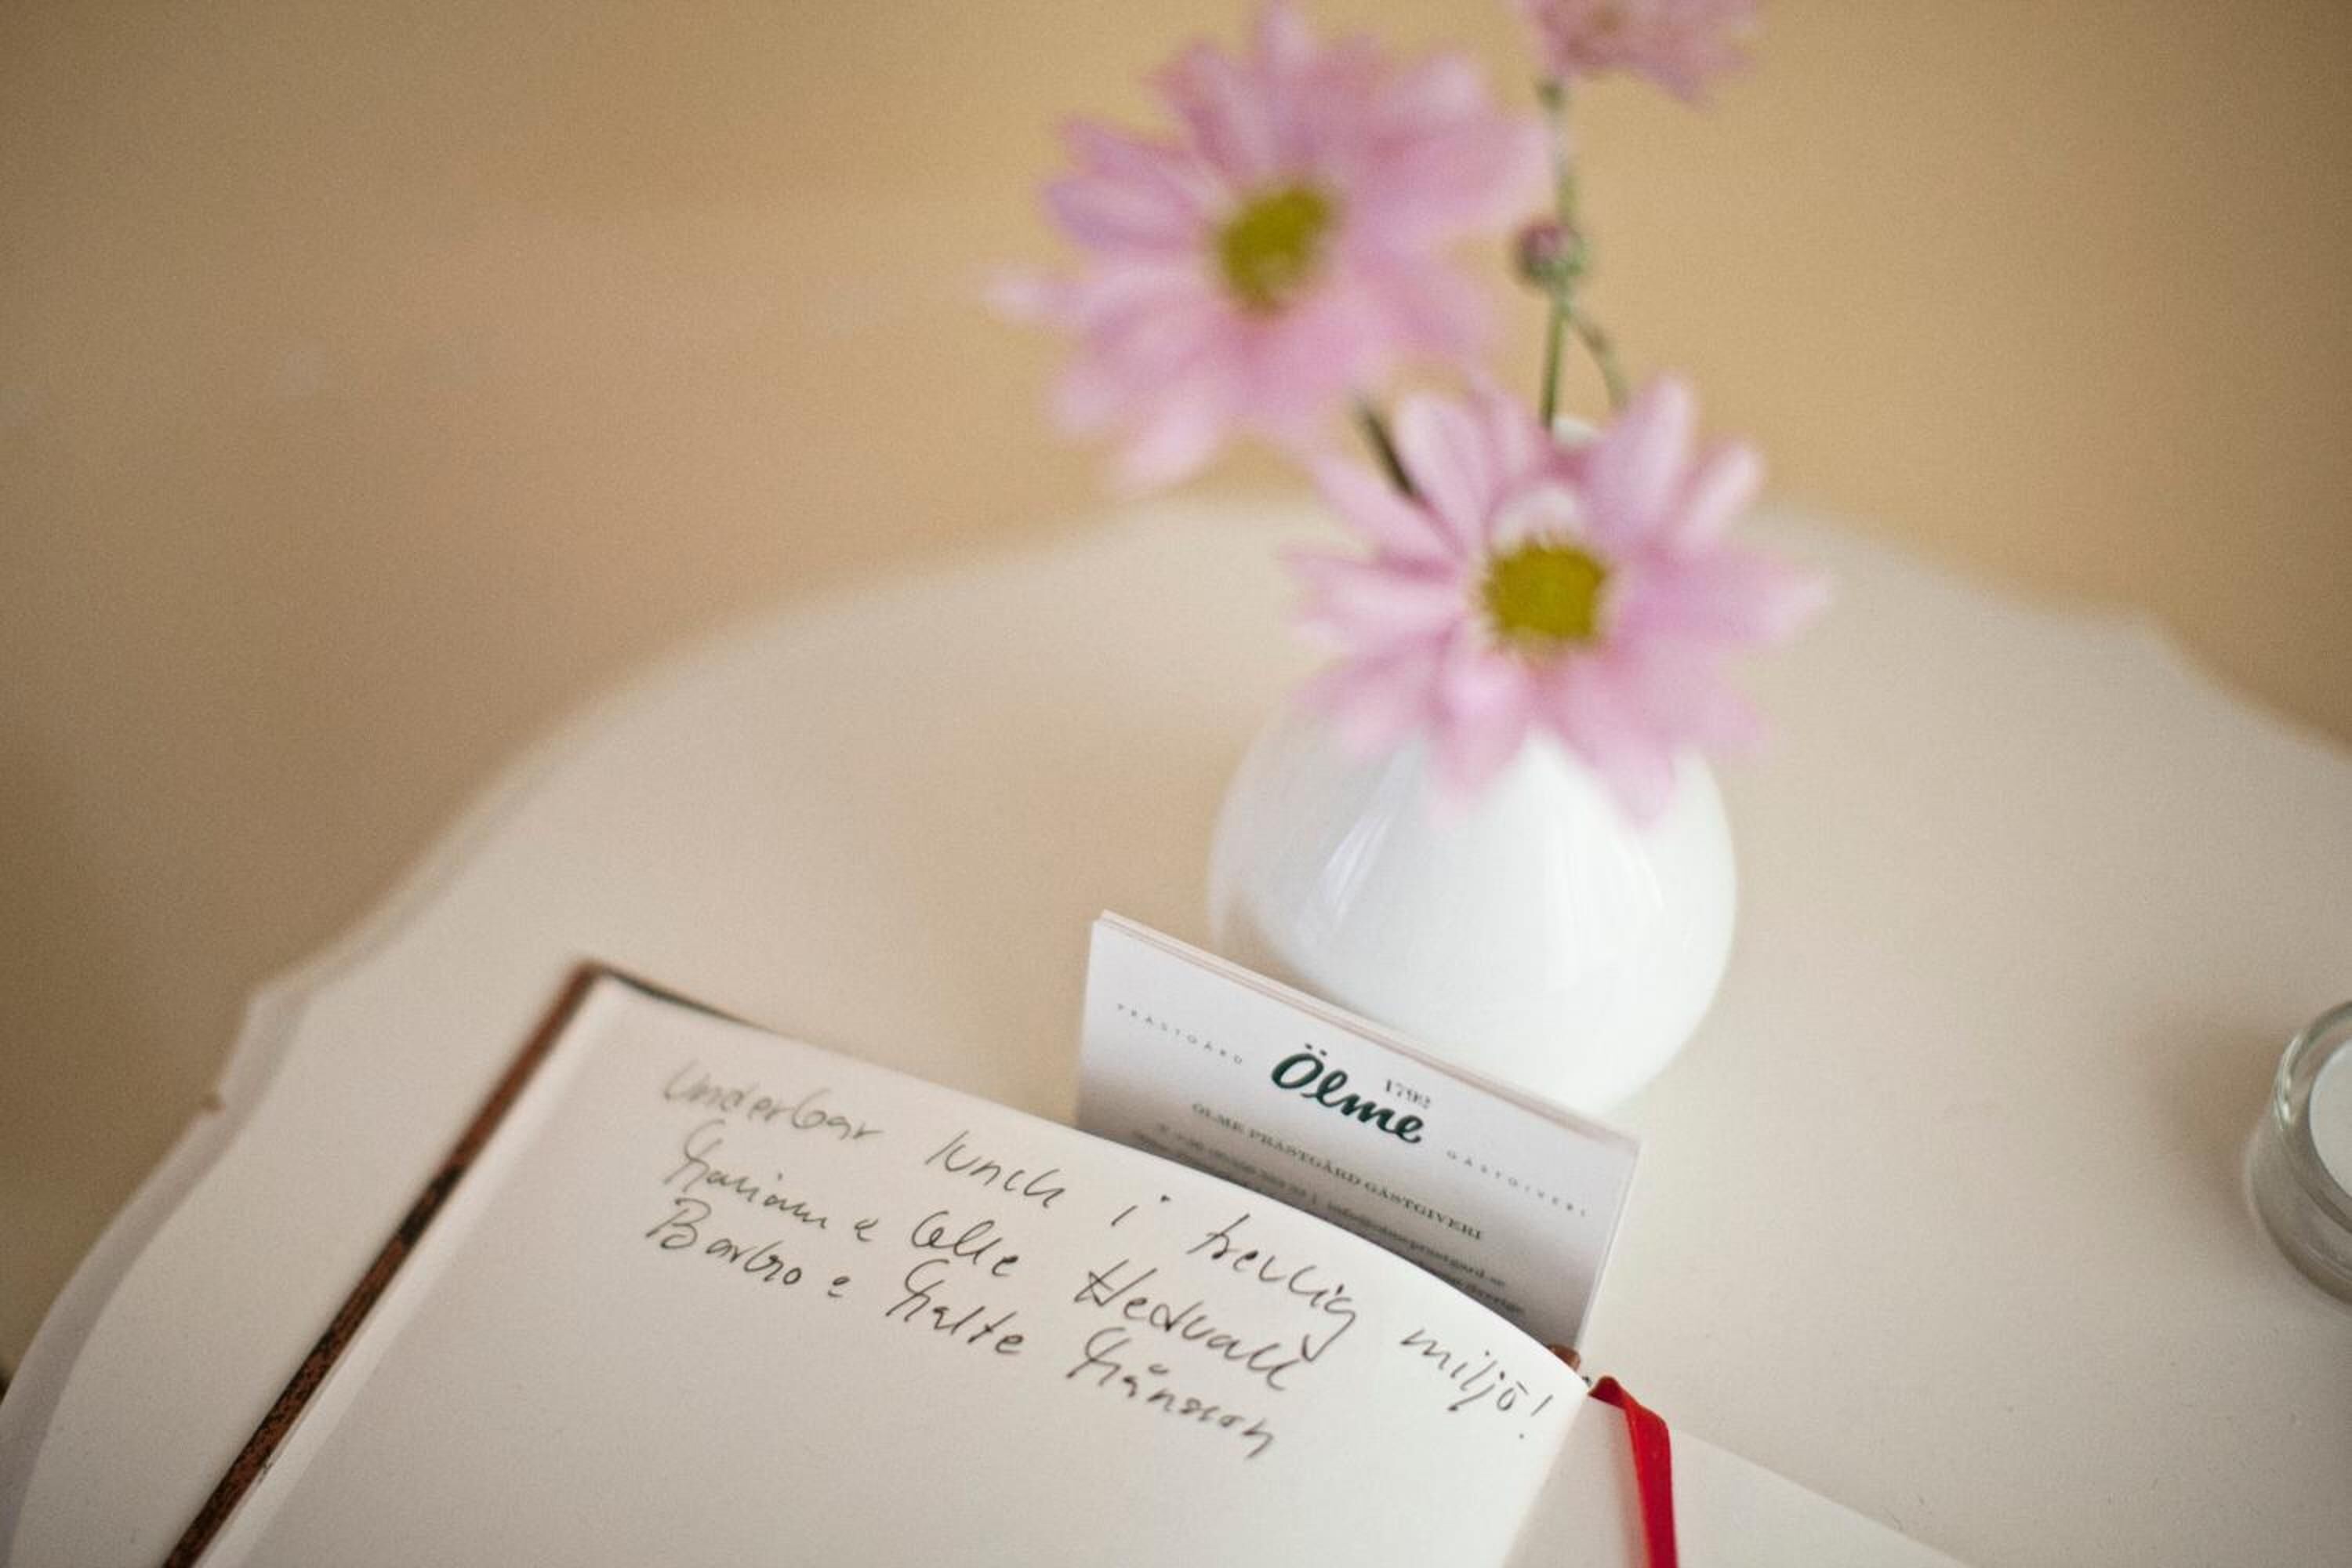 PRÄSTGÅRD
Ölme
1792
GÄSTGIVERI
ÖLME PRÄSTGÅRD GÄSTGIVERI
Underbar lunch i trevlig miljö!
& Hedvall
Barbro & Malte Månsson